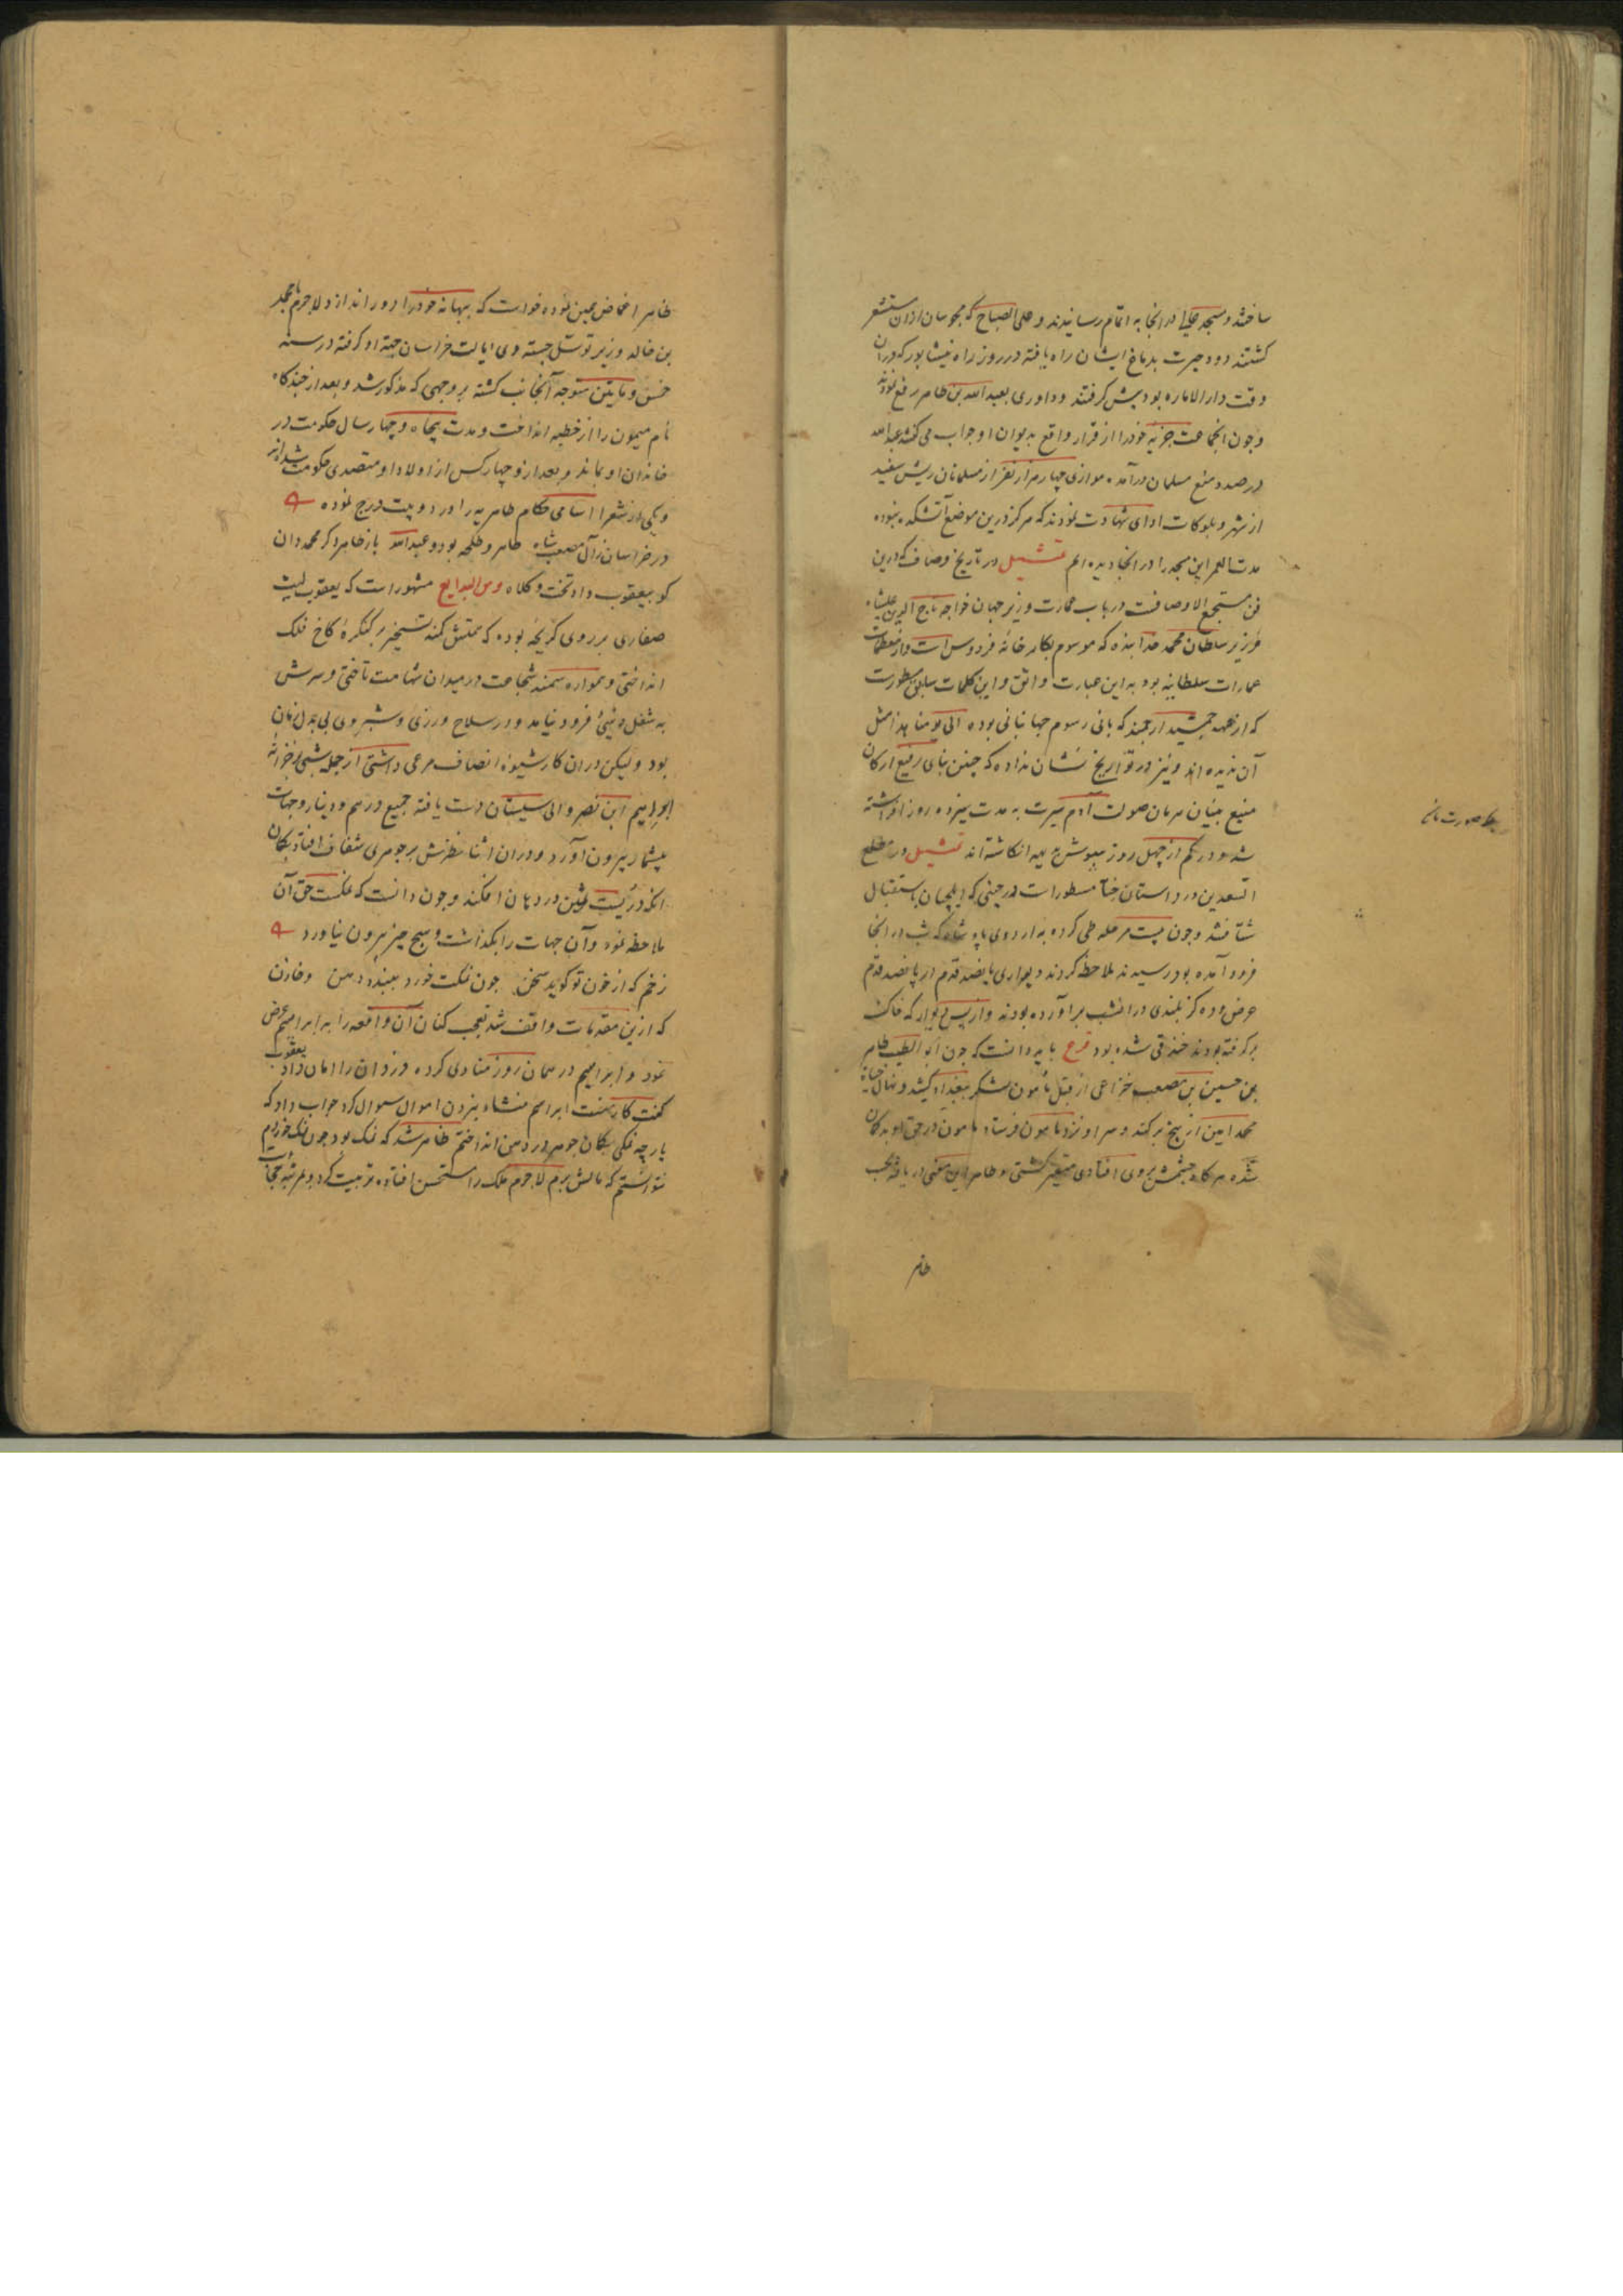 ساختند و مسجد علیا در انجا به اتمام رسانیدند و علی الصباح که مجوسان ازان مستشعر
کشتند دود حیرت بدماغ ایشان راه یافته در روز راه نیشابور که دران
وقت دار الاماره بود پیش کرفتند و داوری بعبد الله بن طاهر رفع نمودند
و چون انجماعت جزیه خود را از قرار واقع بدیوان او جواب می کفتند عبد الله
در صدد منع مسلمان درآمده موازی چهار هزار نفر از مسلمانان ریش سفید
از شهر و بلوکات ادای شهادت نمودند که هرکز درین موضع آتشکده نبوده
مدت العمر این مسجد را در انجا دیده ایم تمثیل در تاریخ وصاف که درین
فن مستجمع الاوصافست در باب عمارت وزیر جهان خواجه تاج الدین علیشاه
وزیر سلطان محمد خدابنده که موسوم بکارخانه فردوس است و از معظمات
عمارات سلطانیه بود به این عبارت واثق و این کلمات سابق مسطورست
که از عهد جمشید ارجمند که بانی رسوم جهانبانی بوده الی یومنا هذا مثل
آن ندیده اند و نیز در تواریخ نشان نداده که چنین بنای رفیع ارکان
منیع بنیان هرمان صولت آدم سیرت به مدت سیزده روز افراشته
شد و در کم از چهل روز ببوشش انکاشته اند تمثیل در مطلع
السعدین در داستان ختا مسطورات در حینی که ایلچیان باستقبال
شتافتند و چون بیست مرحله طی کرده به اردوی پادشاه که شب در انجا
فرود آمده بود رسیدند ملاحظه کردند دیواری پانصد قدم در پانصد قدم
عرض و ده کز بلندی در انشب برآورده بودند و از پس دیوار که خاکش
برکرفته بودند خندقی شده بود فرح باید دانست که چون ابو الطیب طاهر
بن حسین بن مصعب خزاعی از قبل مأمون لشکر ببغداد کشید و نهال حیات
محمد امین از بیخ برکند و سر او نزد مامون فرستاد مامون در حق او بدکمان
شده هرکاه چشمش بروی افتادی متغیر کشتی و طاهر این معنی دریافته بحسب
طاهر
صورت مانی
ظاهر اغماض عین نموده خواست که ببهانه خود را دور اندازد لاجرم باحمد
بن خالد وزیر توسل جسته وی ایالت خراسان جهة او کرفته در سنه
خمس و مایتین متوجه آنجانب کشته بر وجهی که مذکور شد و بعد از چند کاه
نام میمون را از خطبه انداخت و مدت پنجاه و چهار سال حکومت در
خاندان او بماند و بعد از و چهار کس از اولاد او متصدی حکومت شده اند
و یکی از شعرا اسامی حکام طاهریه را در دو بیت درج نموده
در خراسان ز آل مصعب شاه طاهر و طلحه بود و عبد الله باز طاهر دکر محمد دان
کو بیعقوب داد تخت و کلاه ومن البدایع مشهور است که یعقوب لیث
صفاری بر روی کریخه بوده که همتش کمند تسخیر بر کنکره کاخ فلک
انداختی و همواره سمند شجاعت در میدان شهامت تاختی و سرش
به شغل دنیی فرود نیامد و در سلاح ورزی و شبروی بی بدل زمان
بود و لیکن در ان کار شیوه انصاف مرعی داشتی از جمله شبی بخزانه
ابرهیم ابن نصر والی سیستان دست یافته جمیع درهم و دینار و جهات
بیشمار بیرون آورد و در ان اثنا نظرش بر جوهری شفاف افتاد بکمان
انکه دریست ثمین در دهان افکند و چون دانست که نمکست حق آن
ملاحظه نموده و آن جهات را بکذاشت و هیچ چیز بیرون نیاورد
زخم که از خون تو کوید سخن چون نمکت خورد ببندد دهن و خازن
که ازین مقدمات واقف شد تعجب کنان آن واقعه را به ابراهیم عرض
نمود و ابراهیم در همان روز منادی کرده دزدان را امان داد یعقوب
کفت کار منست ابراهیم منشاء نبردن اموال سوال کرد جواب داد که
پارچه نمکی بکمان جوهر در دهن انداختم ظاهر شد که نمک بود چون نمک خوردم
نتوانستم که مالش برم لاجرم ملک را مستحسن افتاده تربیت کرد و بمرتبه حجابت